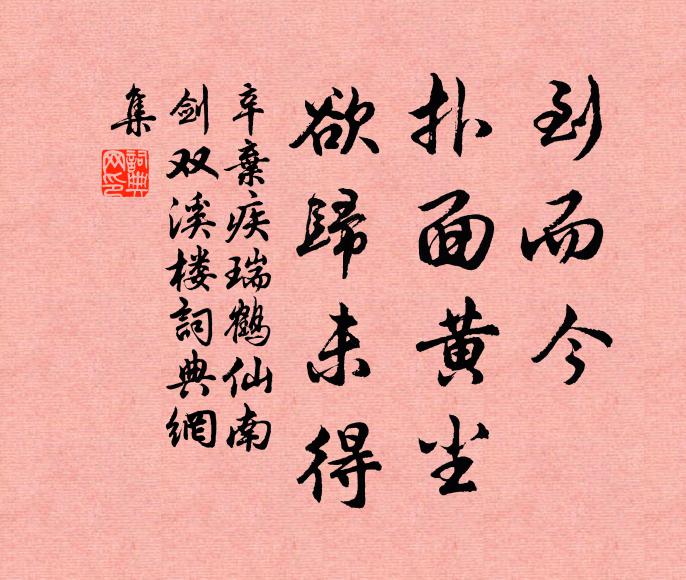 到而今
扑面黄尘
欲歸未得
辛棄疾瑞鶴仙南
剑双溪楼詞典網
集
詞典网印